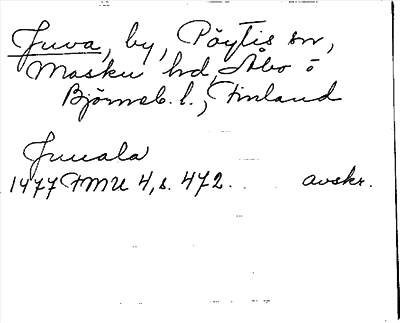 Juva, by, Pöytis sn,
Masku hd, Åbo o
Björneb. l., Finland
Juuala
1477 FMU 4, s. 472. avskr.